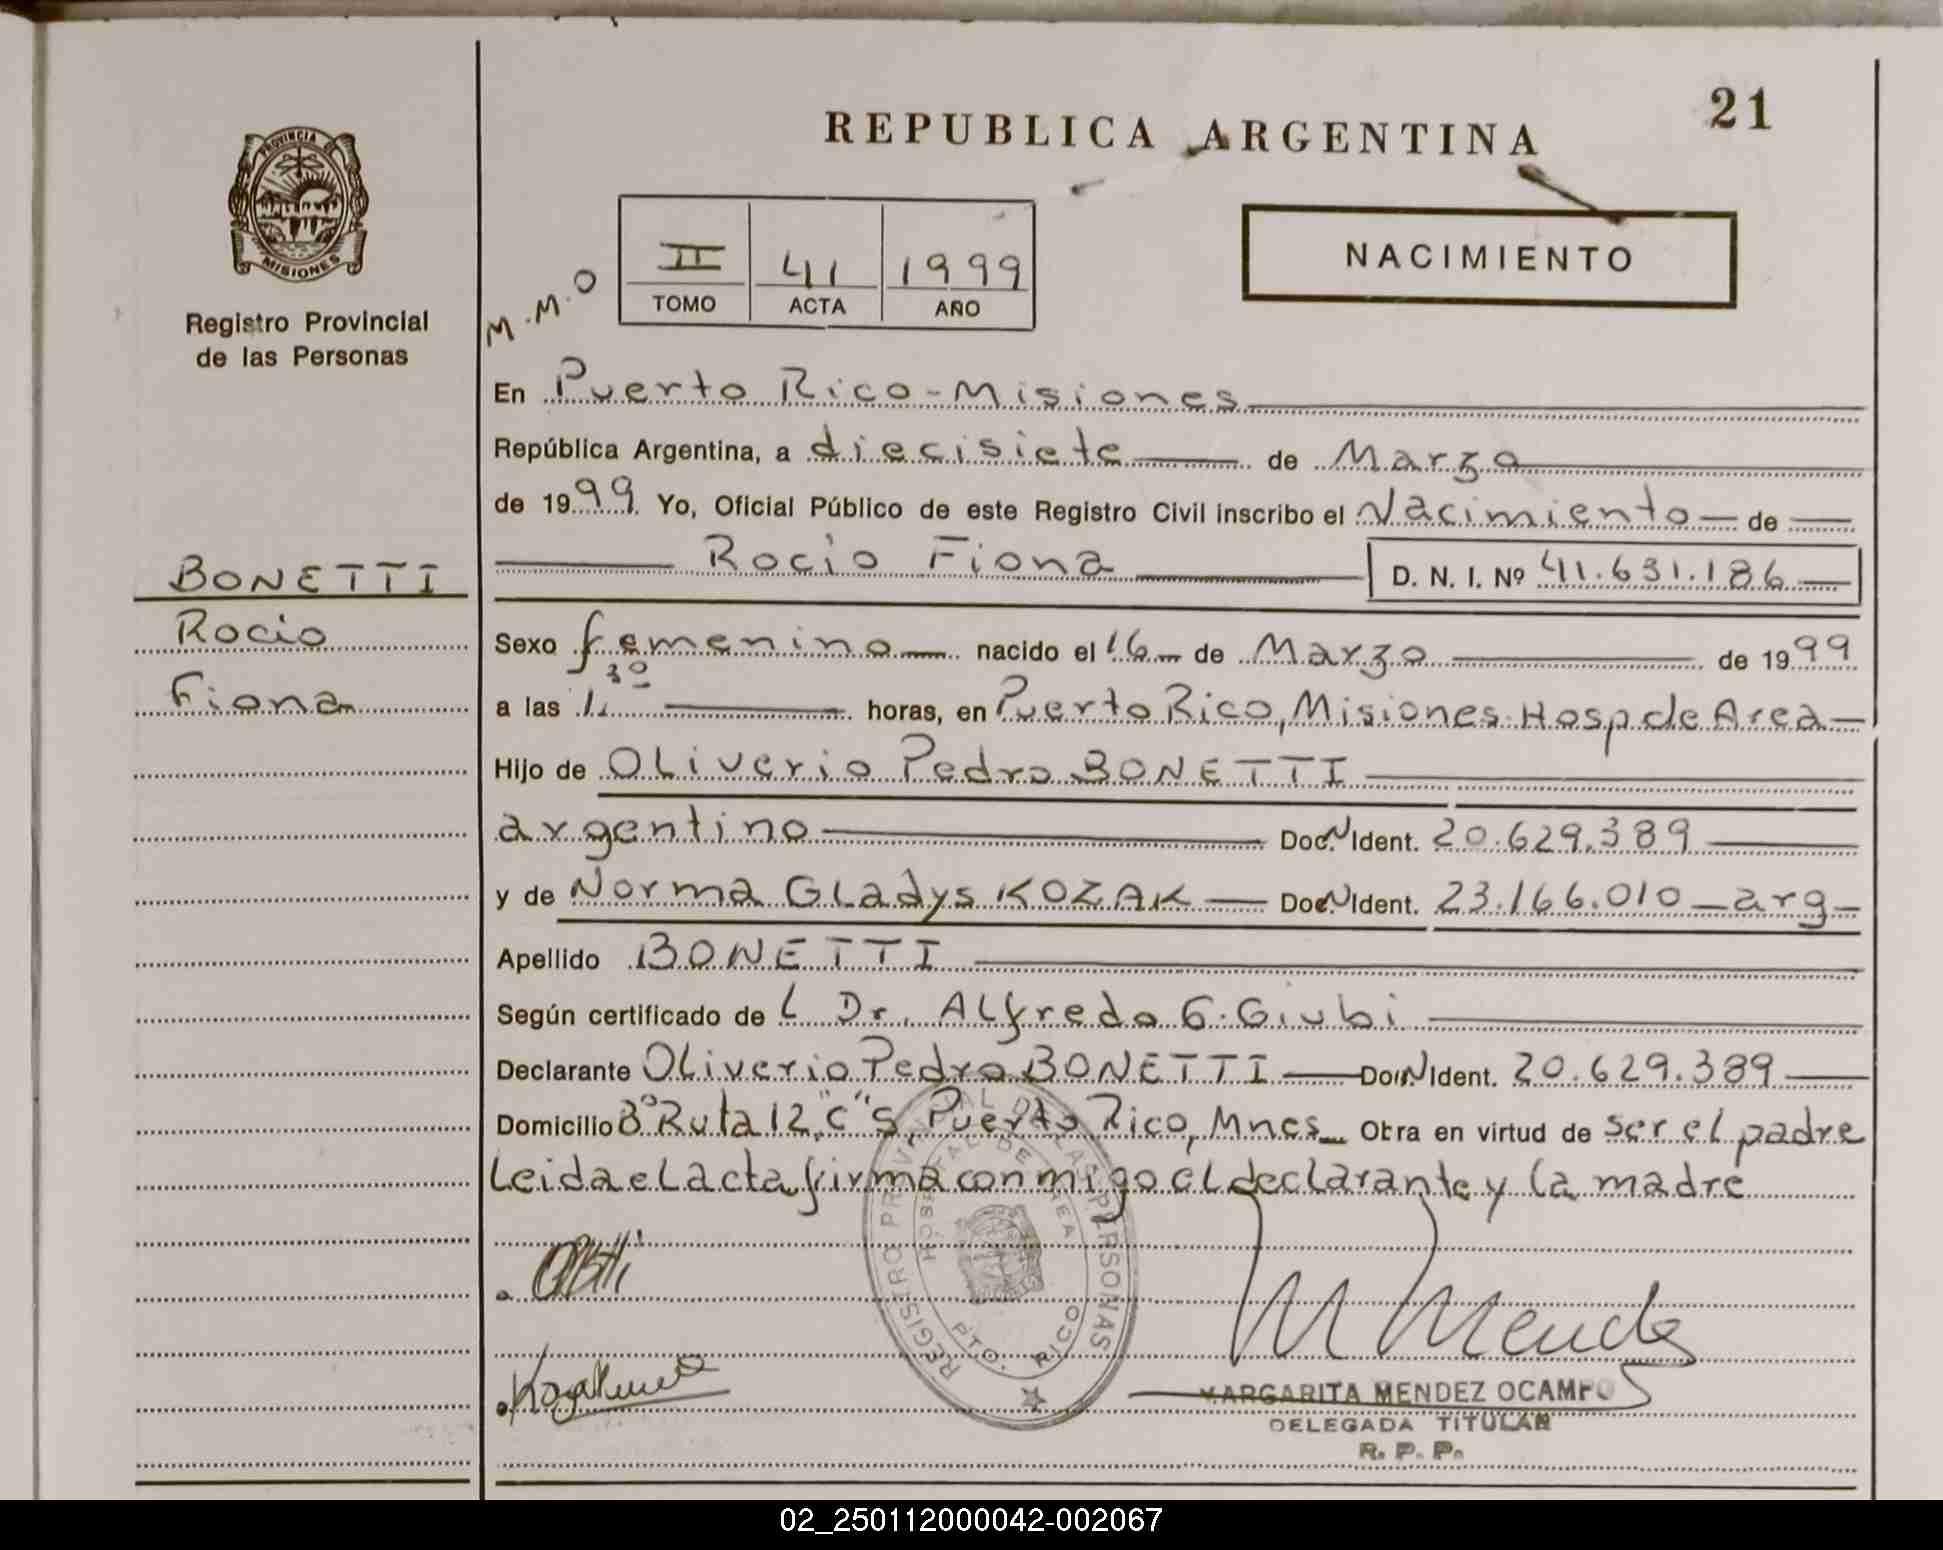 21
REPUBLICA ARGENTINA
PROVINCIA DE
MISIONES
Registro Provincial
de las Personas
II 41 1999
TOMO ACTA AÑO
NACIMIENTO
M.M.O
En Puerto Rico-Misiones
República Argentina, a diecisiete de Marzo
de 1999 Yo, Oficial Público de este Registro Civil inscribo el Nacimiento de
Rocio Fiona D. N. I. Nº 41.631.186
BONETTI
Rocio
Fiona
Sexo femenino nacido el 16 de Marzo de 1999
a las 1.30 horas, en Puerto Rico, Misiones. Hosp de Area
Hijo de Oliverio Pedro BONETTI
argentino Doc. N Ident. 20.629.389
y de Norma Gladys KOZAK Doc. N Ident. 23.166.010 arg
Apellido BONETTI
Según certificado de L Dr. Alfredo G. Giubi
Declarante Oliverio Pedro BONETTI Doc. N Ident. 20.629.389
Domicilio Bº Ruta 12, "C" S, Puerto Rico, Mnes Obra en virtud de ser el padre
Leida el acta firma conmigo el declarante y la madre
REGISTRO PROVINCIAL DE LAS PERSONAS
HOSPITAL DE AREA
PTO. RICO
M Mendez
MARGARITA MENDEZ OCAMPO
DELEGADA TITULAR
R. P. P.
02_250112000042-002067